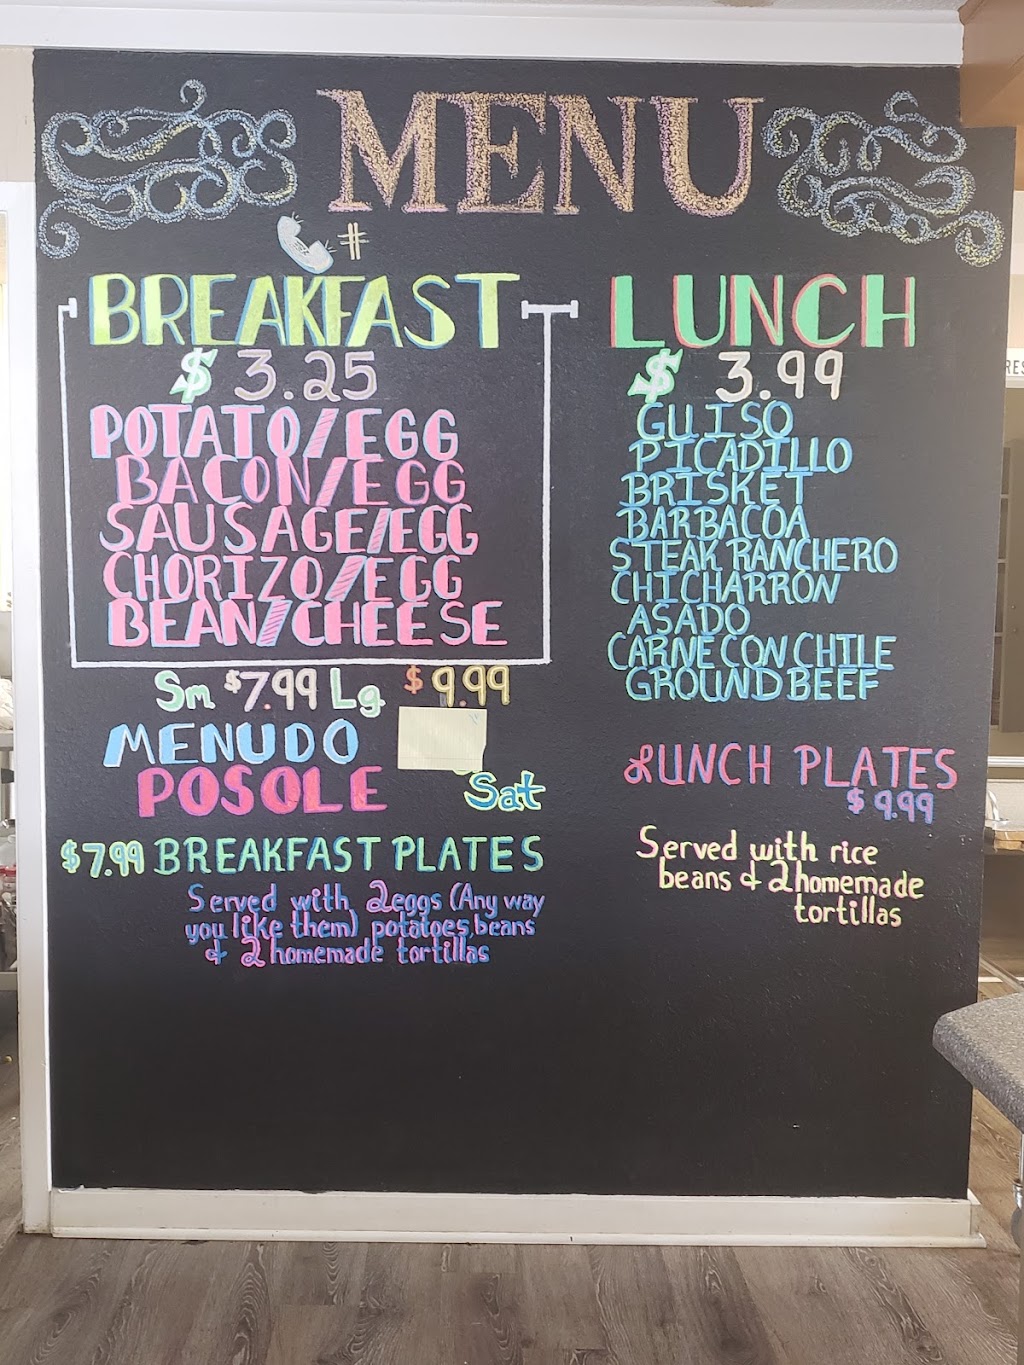 MENU
#
BREAKFAST
$ 3.25
POTATO/EGG
BACON/EGG
SAUSAGE/EGG
CHORIZO/EGG
BEAN/CHEESE
Sm $7.99 Lg $9.99
MENUDO
POSOLE
Sat
$7.99 BREAKFAST PLATES
Served with 2eggs (Any way
you like them) potatoes, beans
& 2 homemade tortillas
LUNCH
$ 3.99
GUISO
PICADILLO
BRISKET
BARBACOA
STEAK RANCHERO
CHICHARRON
ASADO
CARNE CON CHILE
GROUND BEEF
LUNCH PLATES
$ 9.99
Served with rice
beans & 2 homemade
tortillas